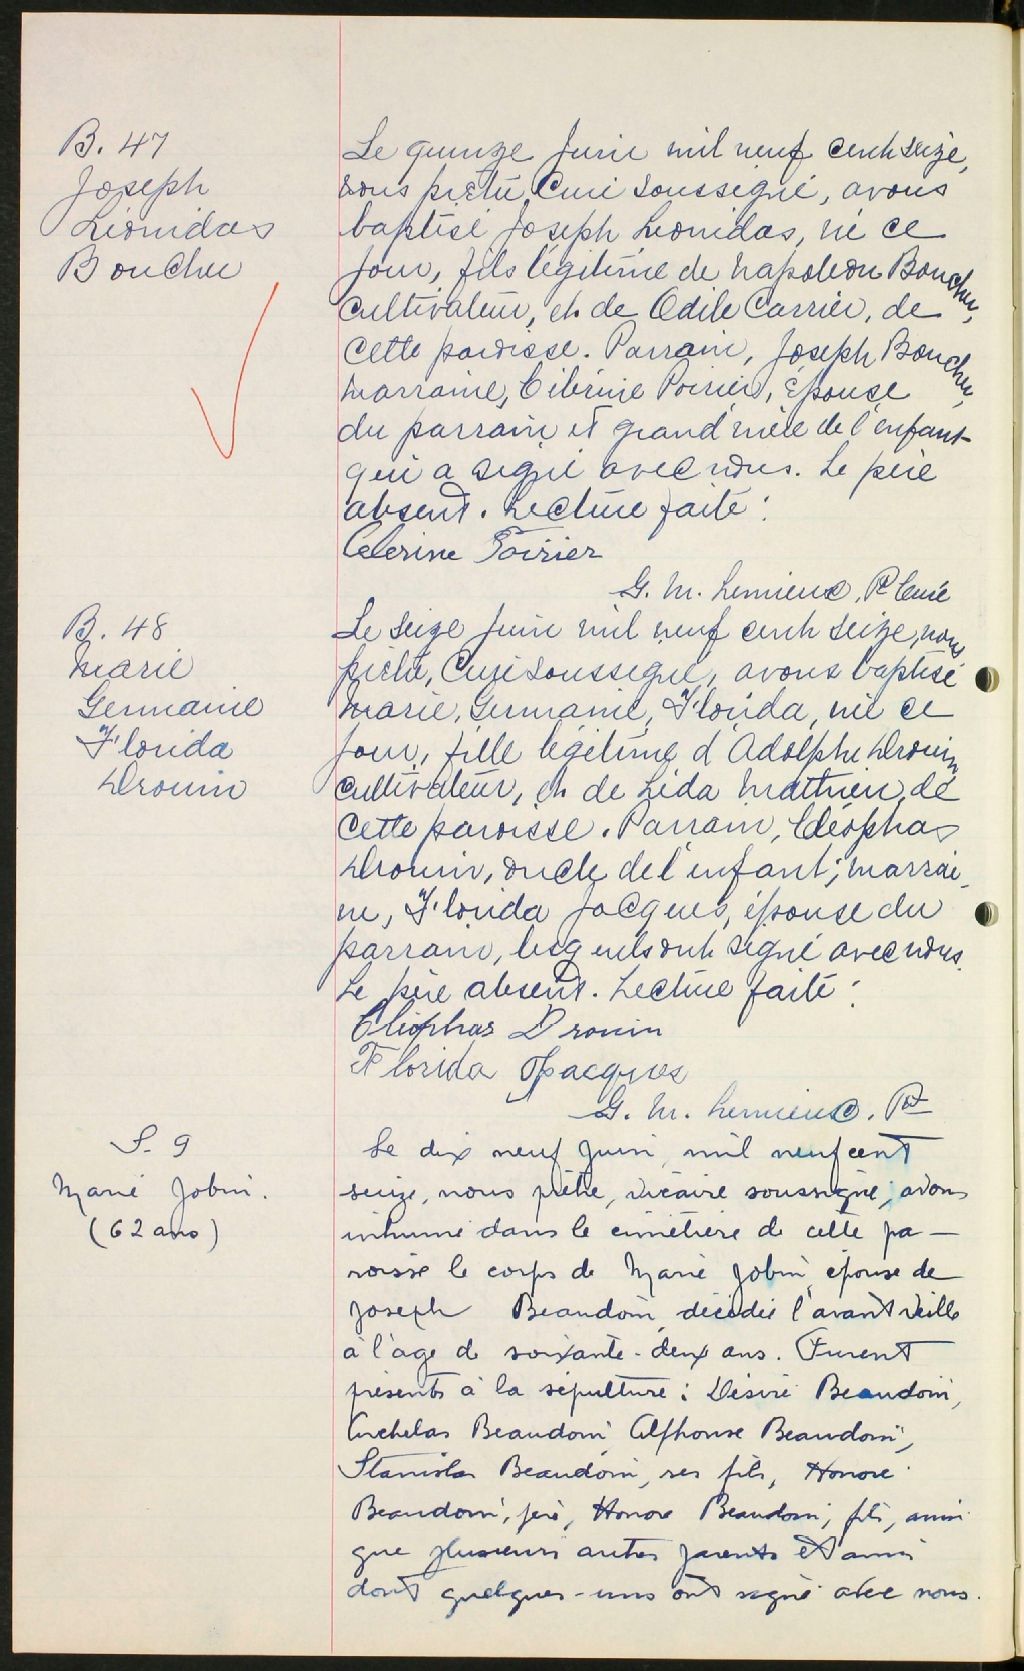 B. 47
Joseph
Léonidas
Boucher
Le quinze Juin mil neuf cent seize,
nous prêtre, Curé soussigné, avons
baptisé Joseph Leonidas, né ce
jour, fils légitime de Napoléon Boucher,
cultivateur, et de Odile Carrier, de
cette paroisse. Parrain, Joseph Boucher,
marraine, Célérine Poirier, épouse
du parrain et grand'mère de l'enfant
qui a signé avec nous. Le père
absent. Lecture faite :
Celerine Poirier
G. M. Lemieux, Pt Curé
B. 48
Marie
Germaine
Florida
Drouin
Le seize Juin mil neuf cent seize, nous
prêtre, Curé soussigné, avons baptisé
Marie, Germaine, Florida, née ce
jour, fille légitime d'Adolphe Drouin,
cultivateur, et de Léda Mathieu, de
cette paroisse. Parrain, Cléophas
Drouin, oncle de l'enfant; marrai-
ne, Florida Jacques, épouse du
parrain, lesquels ont signé avec nous.
Le père absent. Lecture faite :
Cléophas Drouin
Florida Jacques
G. M. Lemieux, Pt
S. 9
Marie Jobin.
(62 ans)
Le dix neuf Juin, mil neuf cent
seize, nous prêtre, vicaire soussigné, avons
inhumé dans le cimetière de cette pa-
roisse le corps de Marie Jobin, épouse de
Joseph Beaudoin, décédée l'avant veille
à l'âge de soixante-deux ans. Furent
présents à la sépulture : Désiré Beaudoin,
Archelas Beaudoin, Alphonse Beaudoin,
Stanislas Beaudoin, ses fils, Honoré
Beaudoin, père, Honoré Beaudoin, fils, ainsi
que plusieurs autres parents et amis
dont quelques-uns ont signé avec nous.